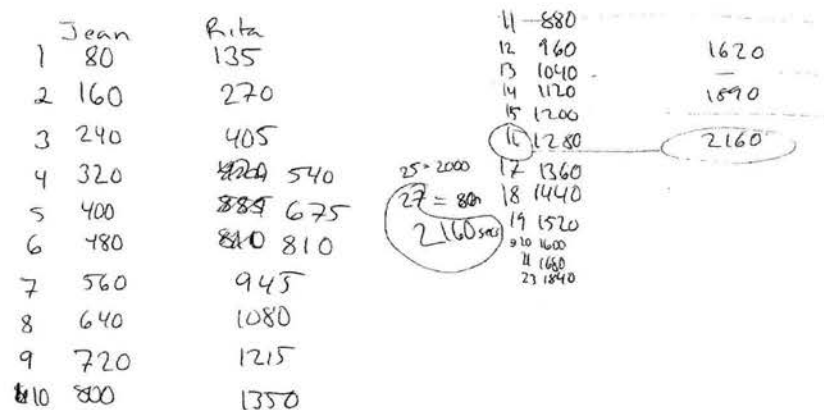 Jean Rita
1 80 135
2 160 270
3 240 405
4 320 540
5 400 675
6 480 810
7 560 945
8 640 1080
9 720 1215
10 800 1350
25 = 2000
27 =
2160 secs
11 880
12 960 1620
13 1040
14 1120 1890
15 1200
16 1280 2160
17 1360
18 1440
19 1520
20 1600
21 1680
23 1840